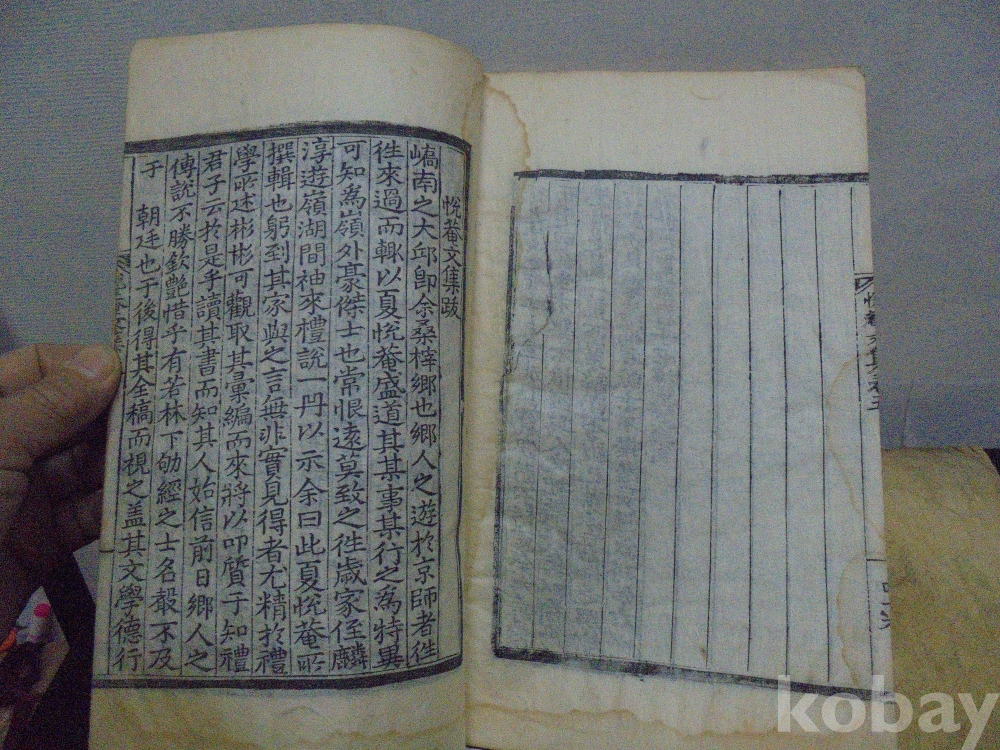 悅菴文集卷之五
悅菴文集跋
嶠南之大邱卽余桑梓鄉也鄉人之遊於京師者徃
徃來過而輒以夏悅菴盛道其某事某行之爲特異
可知爲嶺外豪傑士也常恨遠莫致之徃歲家侄麟
淳遊嶺湖間袖來禮說一丹以示余曰此夏悅菴所
撰輯也躬到其家與之言無非實見得者尤精於禮
學所述彬彬可觀取其彙編而來將以叩質于知禮
君子云於是手讀其書而知其人始信前日鄉人之
傳說不勝欽艶惜乎有若林下劬經之士名聲不及
于 朝廷也于後得其全稿而視之盖其文學德行
kobay